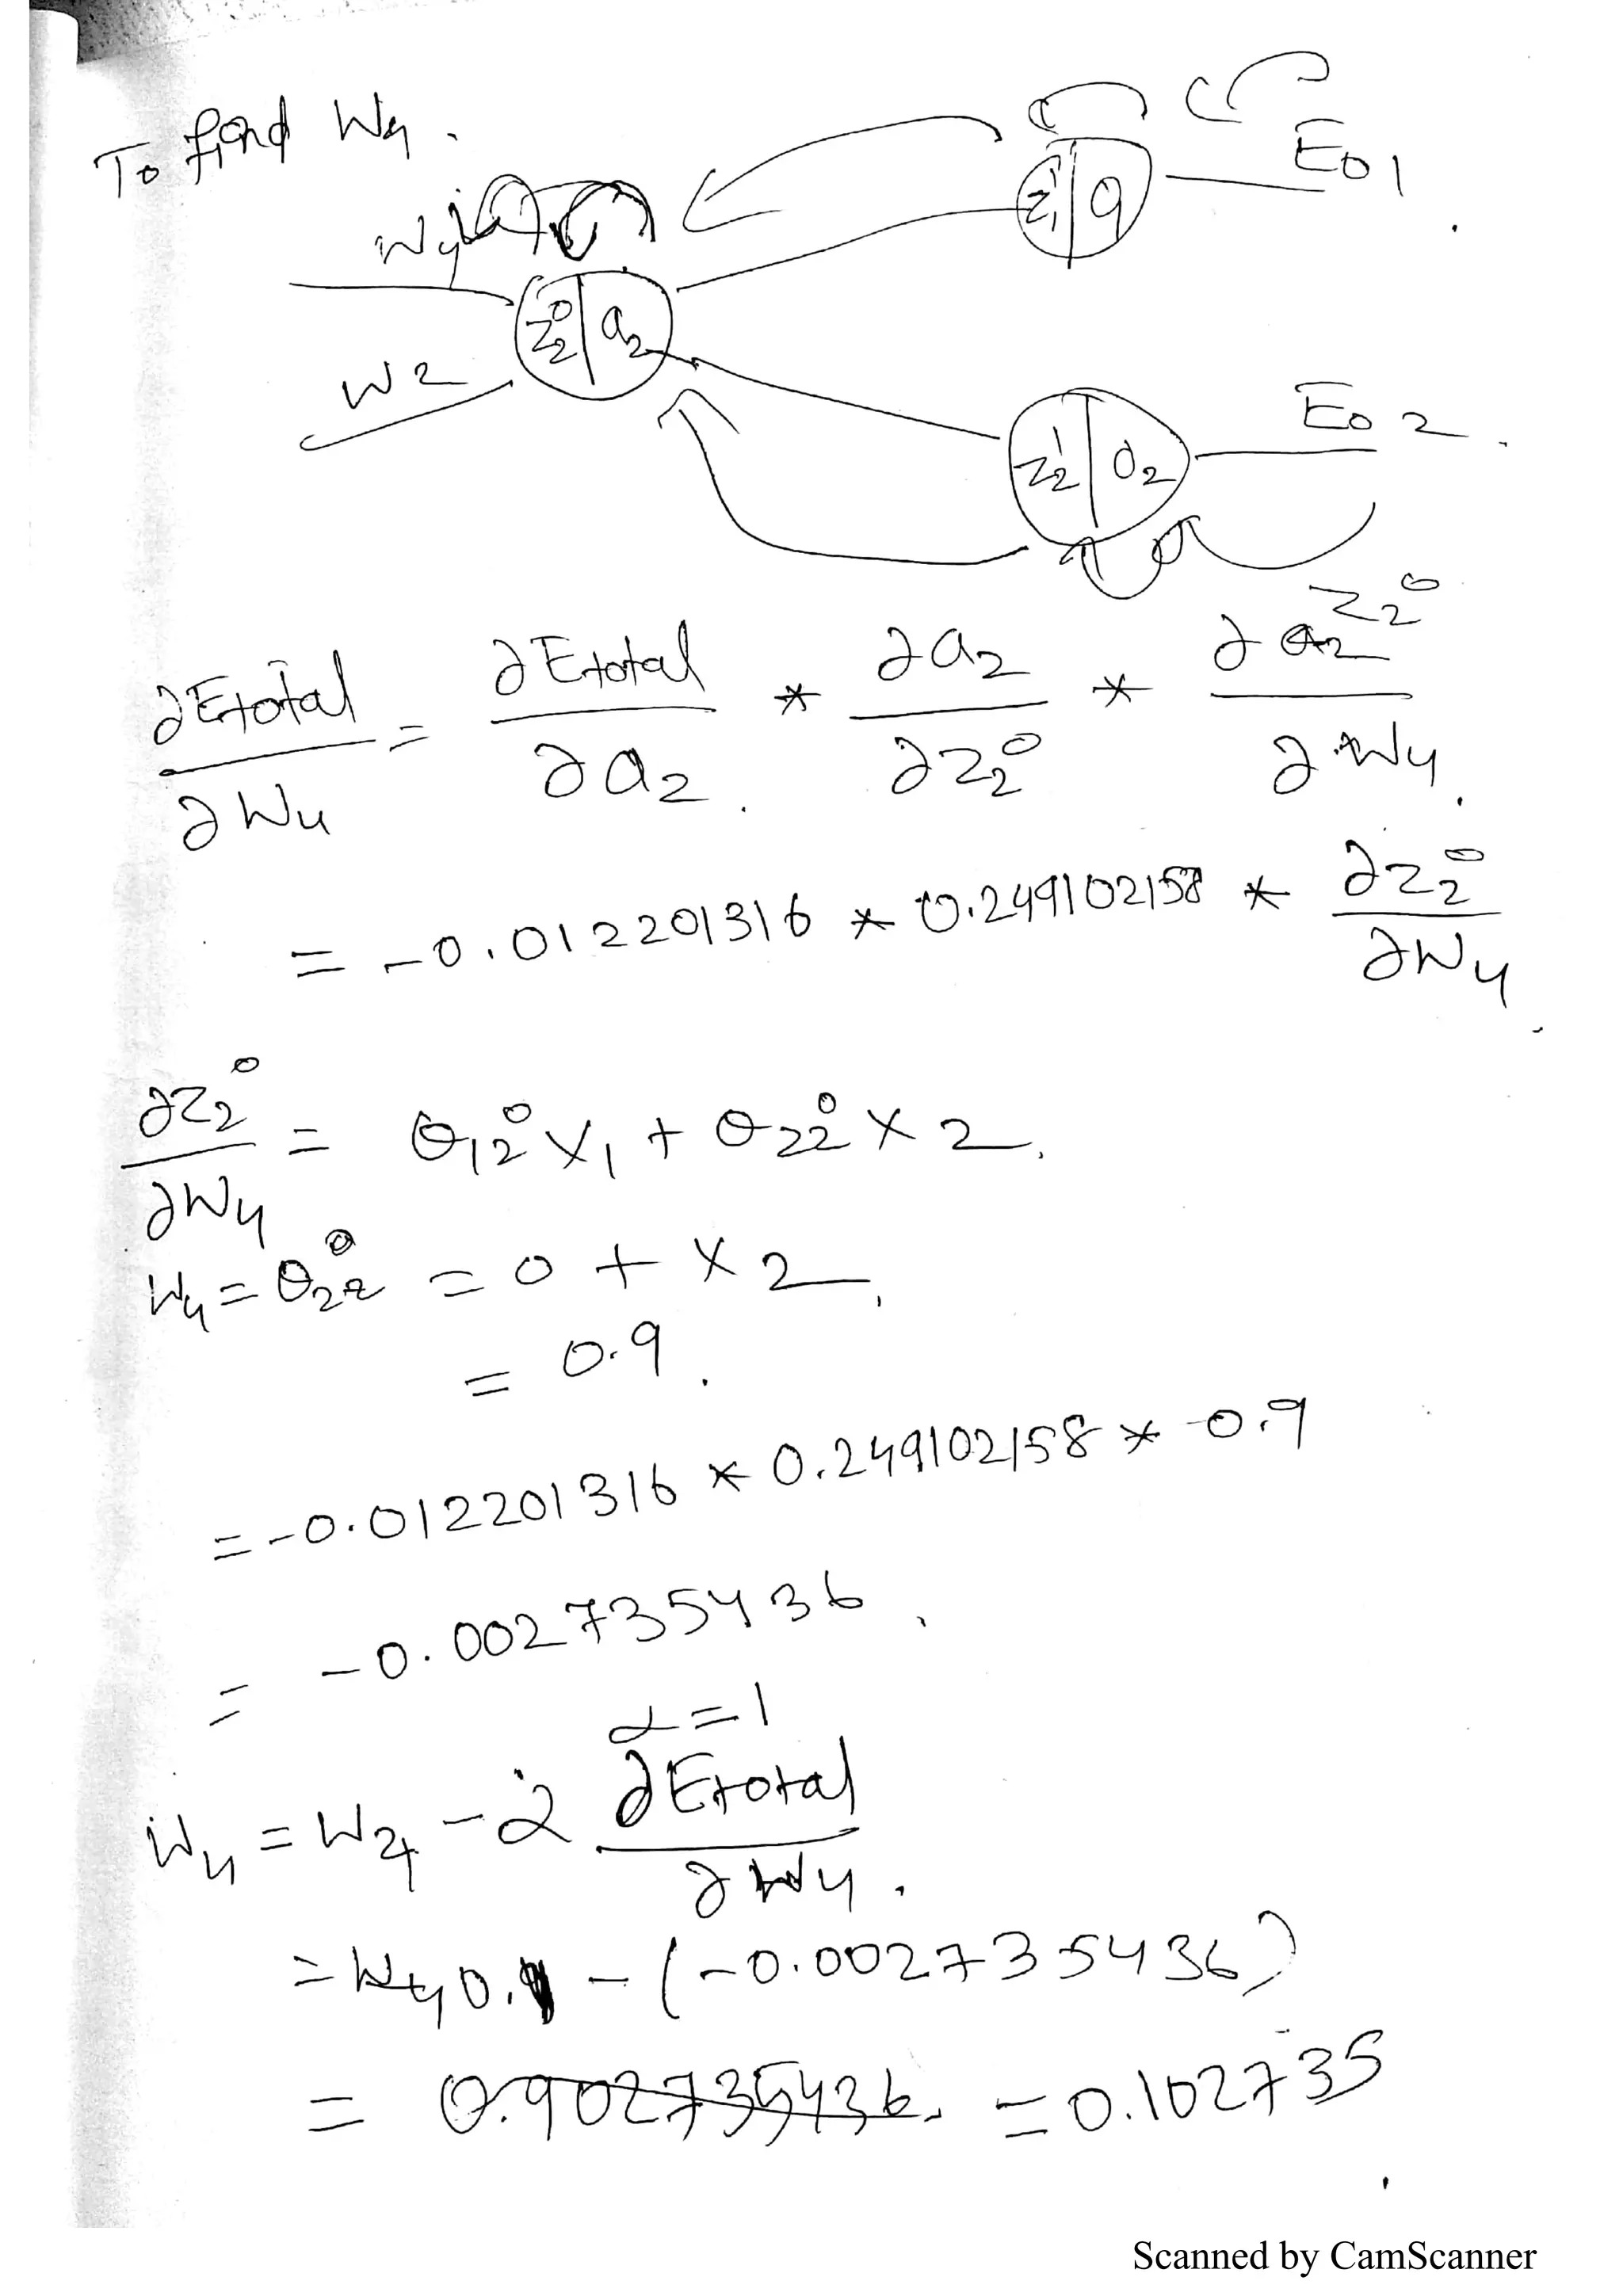 To find W4.
W4
Z1¹ | O1
EO1
Z2⁰ | a2
W2
Z2¹ | O2
EO2.
∂Etotal/∂W4 = ∂Etotal/∂a2 * ∂a2/∂Z2⁰ * ∂Z2⁰/∂W4.
= -0.012201316 * 0.249102158 * ∂Z2⁰/∂W4.
∂Z2⁰/∂W4 = θ12⁰ X1 + θ22⁰ X2.
W4 = θ22⁰ = 0 + X2.
= 0.9.
= -0.012201316 * 0.249102158 * 0.9
= -0.002735436.
α = 1
W4 = W4 - α ∂Etotal/∂W4.
= W4 0.1 - (-0.002735436)
= 0.902735436. = 0.102735
Scanned by CamScanner